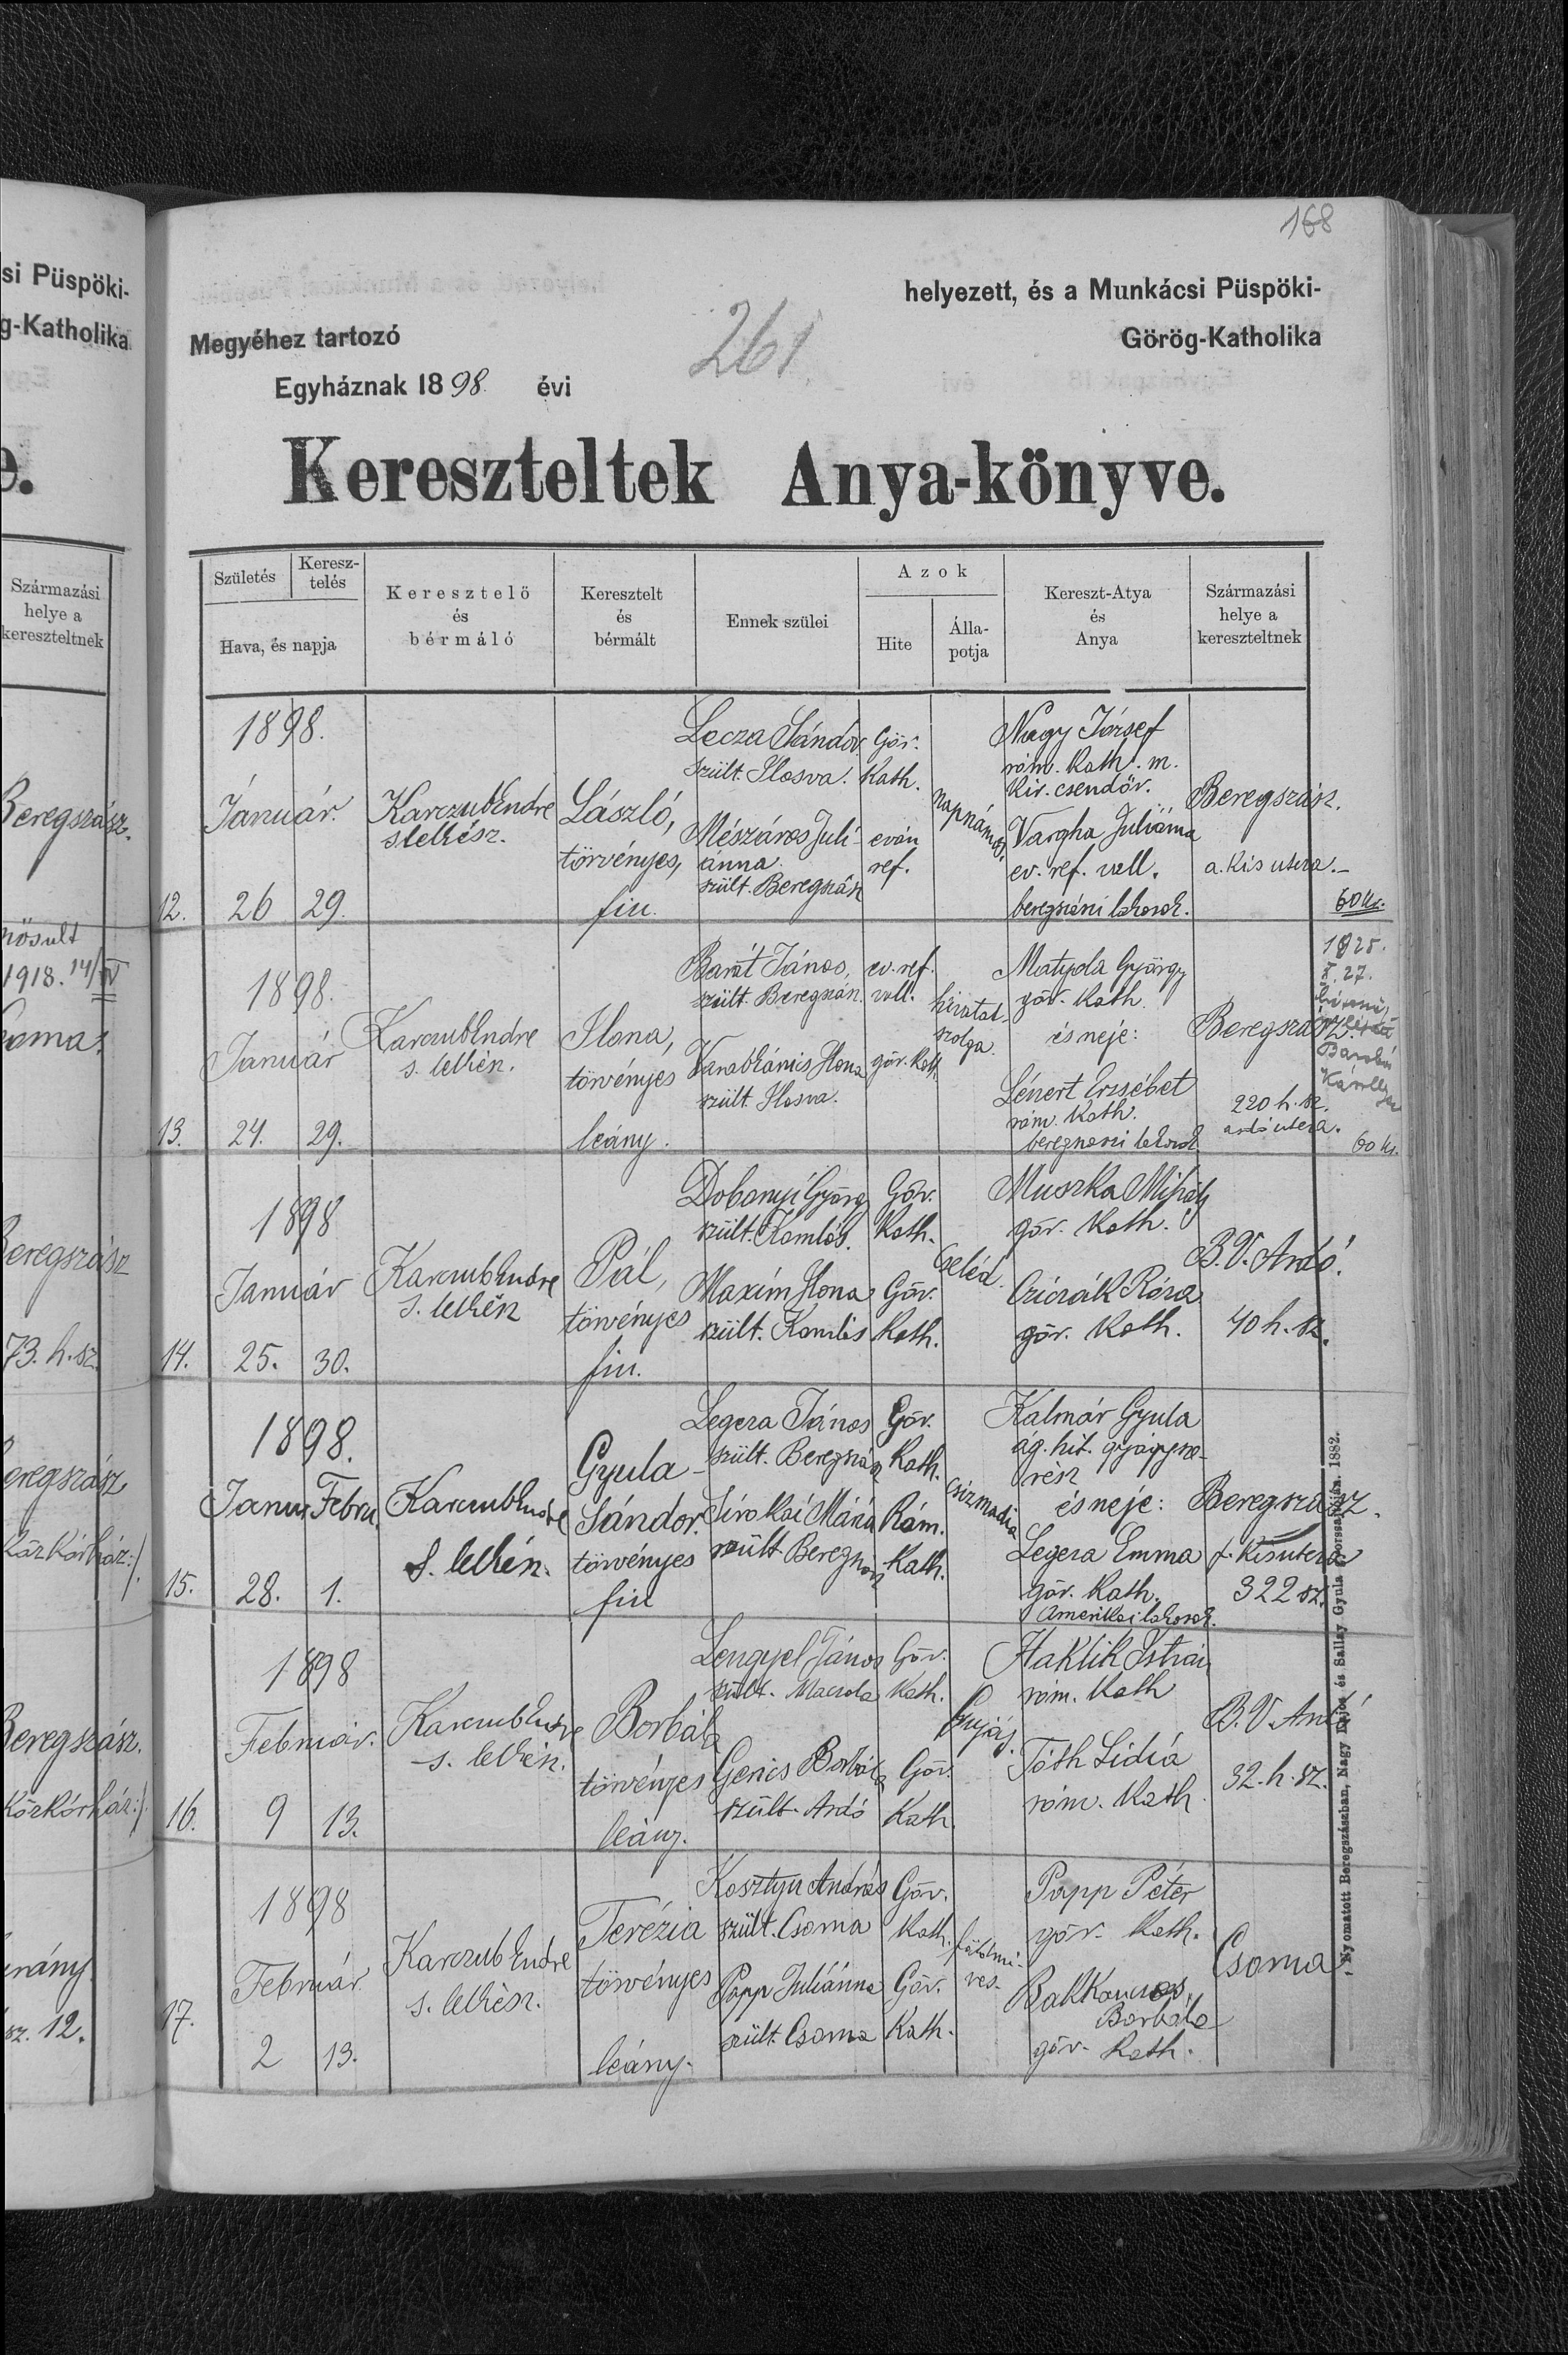 168
si Püspöki-
g-Katholika
e.
Származási
helye a
kereszteltnek
Beregszász.
nősult
1918. 14/IV
Csoma.
Beregszász
73. h. sz.
Beregszász
Közkórház:/.
Beregszász.
Közkórház:/.
sz. 12.
helyezett, és a Munkácsi Püspöki-
Megyéhez tartozó
Görög-Katholika
261
Egyháznak 1898. évi
Kereszteltek Anya-könyve.
Születés
Keresz-
telés
Hava, és napja
Keresztelő
és
bérmáló
Keresztelt
és
bérmált
Ennek szülei
Azok
Hite
Álla-
potja
Kereszt-Atya
és
Anya
Származási
helye a
kereszteltnek
12.
1898.
Január.
26 29.
Karczub Endre
s lelkész.
László,
törvényes,
fiu.
Lecza Sándor
szült. Ilosva.
Mészáros Juli-
ánna
szült. Beregszász
Gör.
Kath.
eván
ref.
napszámos.
Nagy József
róm. Kath. m.
kir. csendőr.
Vargha Juliánna
ev. ref. vall.
beregszászi lakosok.
Beregszász.
a. kis utcza.
60 kr.
13.
1898.
Január
24. 29.
Karczub Endre
s. lelkész.
Ilona,
törvényes
leány.
Barát János,
szült. Beregszász.
Ilona
szült. Ilosva.
ev. ref.
vall.
gör. Kath.
hivatal-
szolga.
Matyola György
gör. Kath.
és neje:
Lénert Erzsébet
róm. Kath.
beregszászi lakosok
Beregszász.
220 h. sz.
ardó utcza.
1925.
X. 27.
60 kr.
14.
1898
Január
25. 30.
Karczub Endre
s. lelkész
Pál,
törvényes
fiu.
Dobanyi György
szült. Komlós.
Maxim Ilona
szült. Komlós
Gör.
Kath.
Gör.
Kath.
Cseléd.
Muszka Mihály
gör. Kath.
Cziczák Róza
gör. Kath.
B. V. Ardó.
40 h. sz.
15.
1898.
Janu. Febru.
28. 1.
Karczub Endre
s. lelkész.
Gyula-
Sándor.
törvényes
fiu
Legeza János
szült. Beregszász
Sirokai Mária
szült Beregszász
Gör.
Kath.
Róm.
Kath.
csizmadia
Kalmár Gyula
ág. hit. gyógysze-
rész
és neje:
Legeza Emma
gör. Kath.
Amerikai lakosok.
Beregszász.
f. Kisutcza
322 sz.
16.
1898
Február.
9 13.
Karczub Endre
s. lelkész.
Borbála
törvényes
leány.
Lengyel János
szült. Macsola
Gerics Borbála
szült. Ardó
Gör.
Kath.
Gör.
Kath.
Gulyás.
Haklik István
róm. Kath
Tóth Lidia
róm. Kath.
B. V. Ardó
32. h. sz.
17.
1898
Február
2 13.
Karczub Endre
s. lelkész.
Terézia
törvényes
leány.
Kosztyu András
szült. Csoma
Papp Juliánna
szült. Csoma
Gör.
Kath.
Gör.
Kath.
földmi-
ves.
Papp Péter
gör. Kath.
Borbála
gör. Kath.
Csoma
Nyomatott Beregszászban, Nagy Lajos és Sallay Gyula gyorssajtóján. 1882.